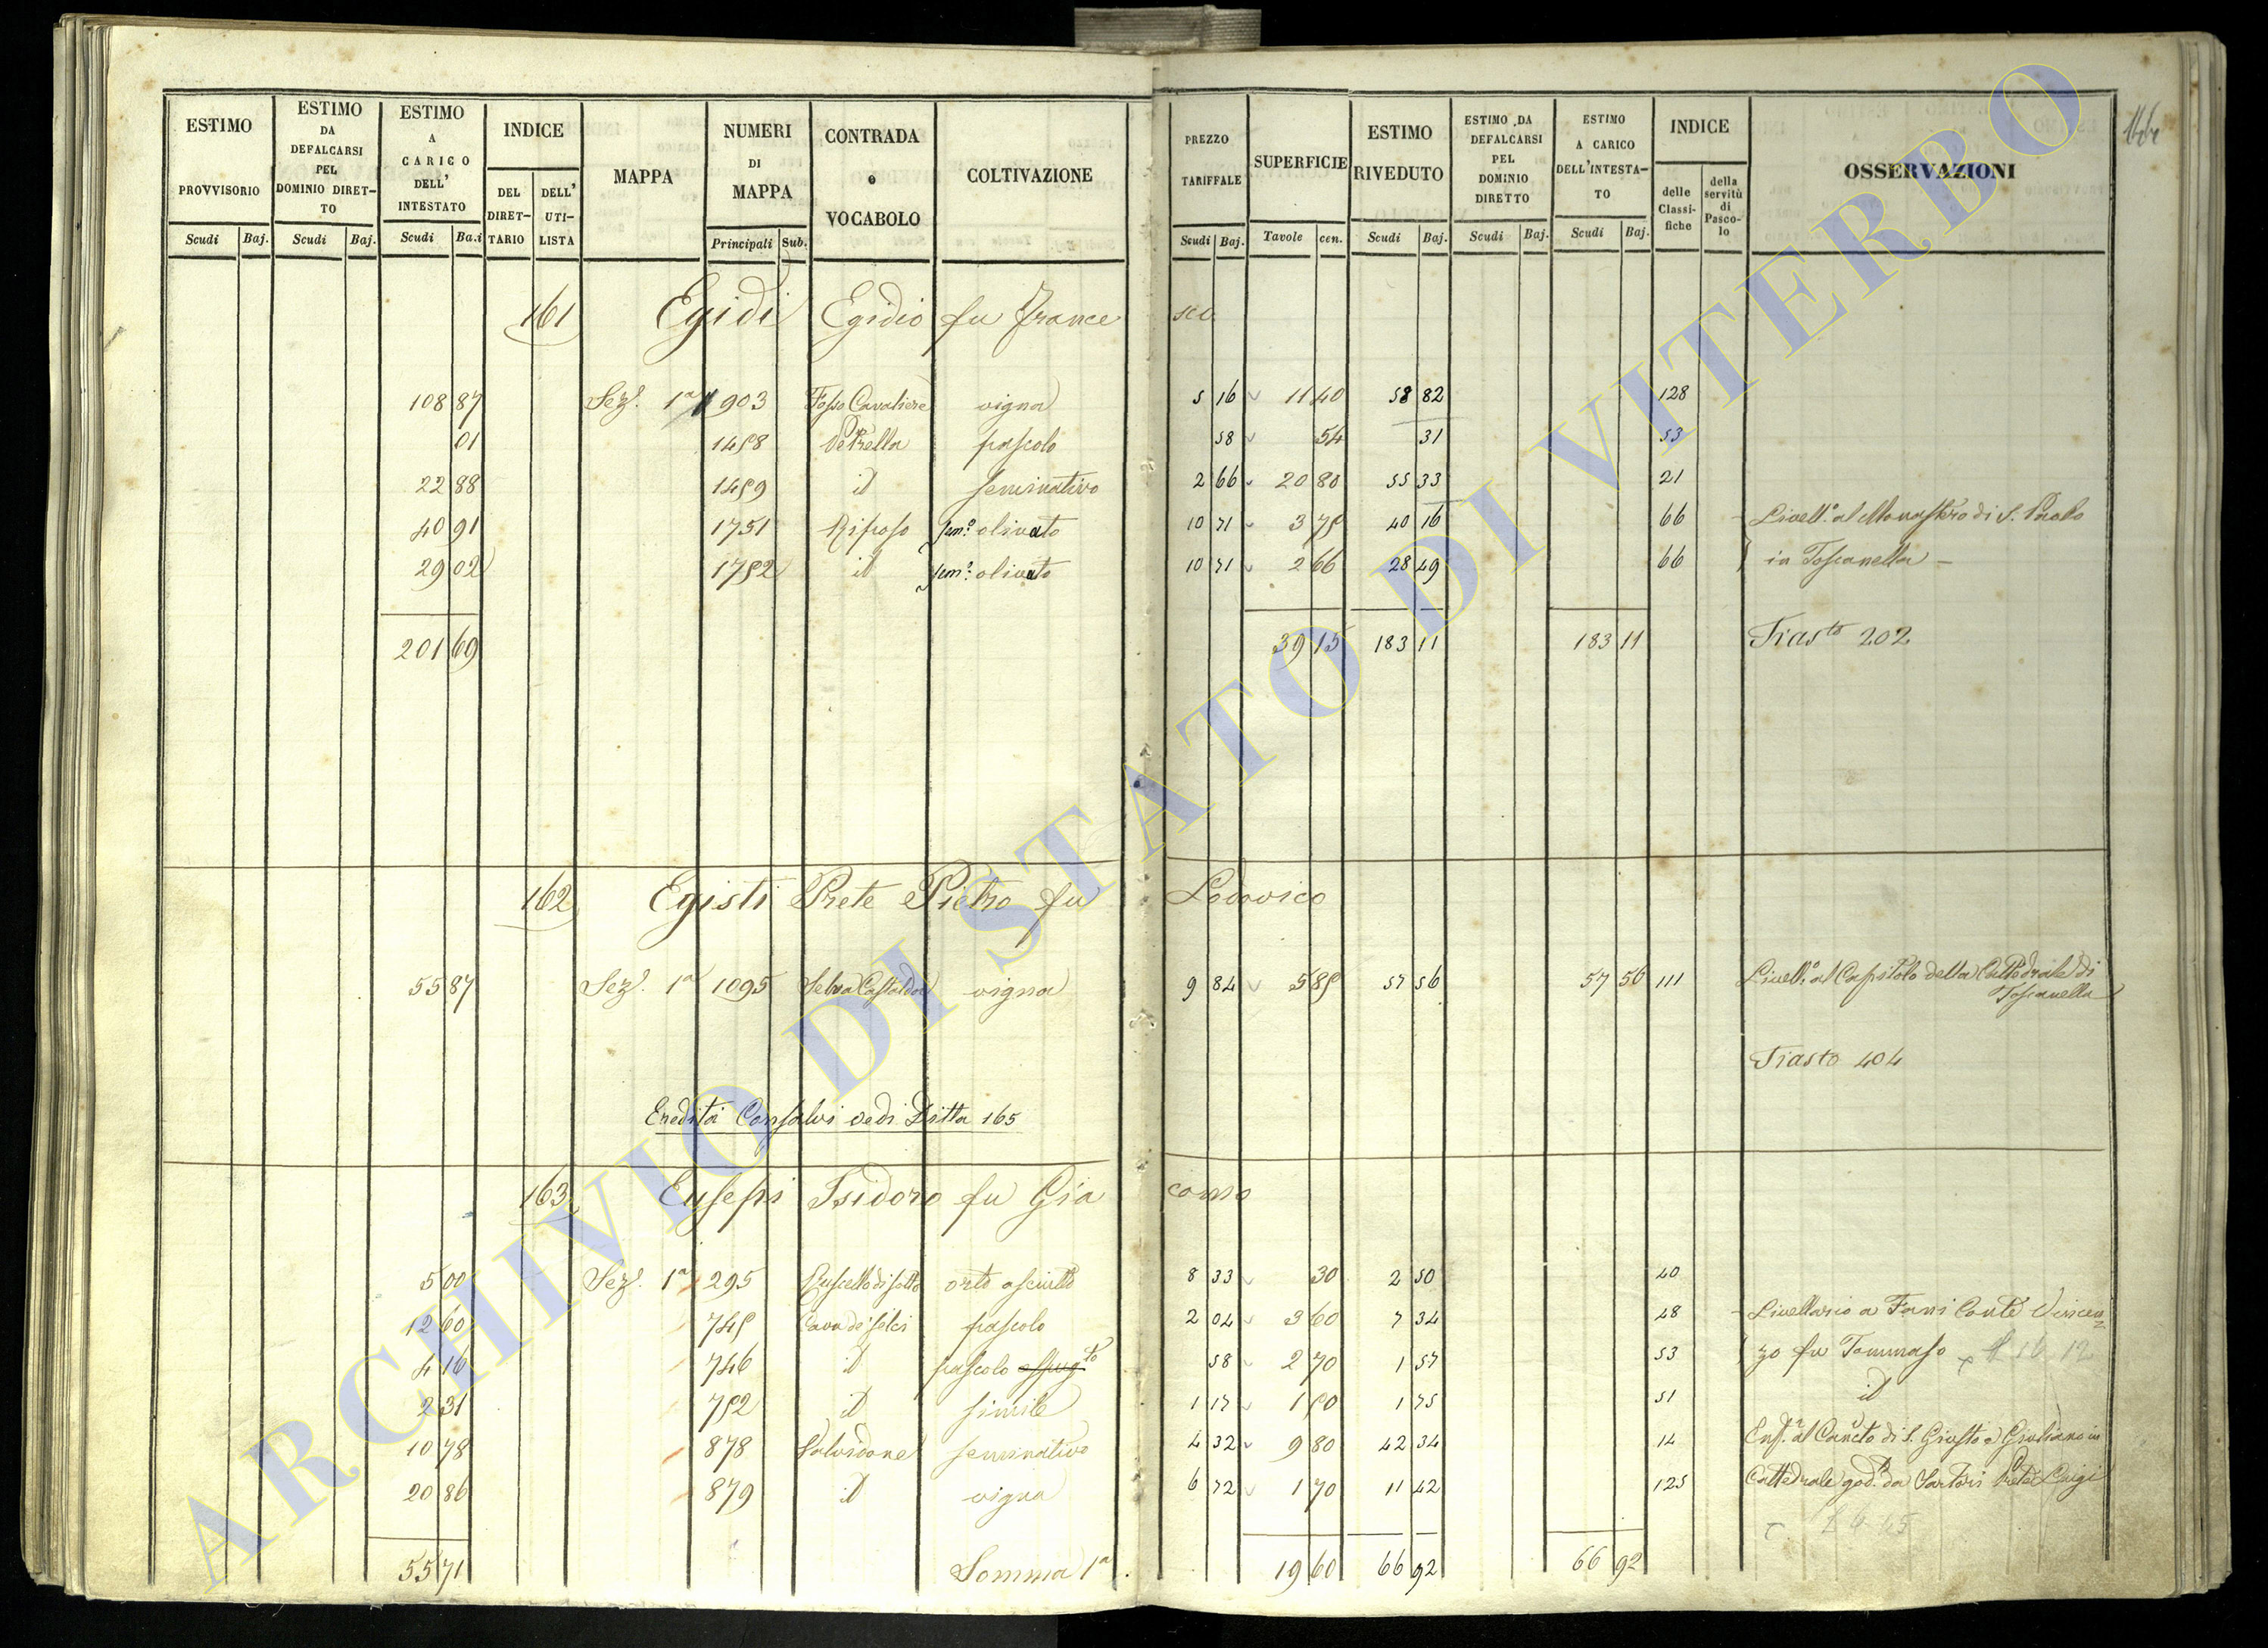 ESTIMO PROVVISORIO | ESTIMO DA DEFALCARSI PEL DOMINIO DIRET-TO | ESTIMO A CARICO DELL' INTESTATO | INDICE | MAPPA | NUMERI DI MAPPA | CONTRADA o VOCABOLO | COLTIVAZIONE | PREZZO TARIFFALE | SUPERFICIE | ESTIMO RIVEDUTO | ESTIMO DA DEFALCARSI PEL DOMINIO DIRETTO | ESTIMO A CARICO DELL'INTESTA-TO | INDICE | OSSERVAZIONI
DEL DIRET-TARIO | DELL' UTI-LISTA | delle Classi-fiche | della servitù di Pasco-lo
Scudi | Baj. | Scudi | Baj. | Scudi | Ba.i | Principali | Sub. | Scudi | Baj. | Tavole | cen. | Scudi | Baj. | Scudi | Baj. | Scudi | Baj.
161 Egidi Egidio fu France sco
108 87 Sez. 1a 903 Fosso Cavaliere vigna 5 16 11 40 58 82 128
01 1458 Petrella pascolo 58 54 31 53
22 88 1459 id seminativo 2 66 20 80 55 33 21
40 91 1751 Riposo sem.o olivato 10 71 3 75 40 16 66 Livell.o al Monastero di S. Paolo
29 02 1752 id sem.o olivato 10 71 2 66 28 49 66 in Toscanella
201 69 39 15 183 11 183 11 Trasto 202
162 Egisti Prete Pietro fu Lodovico
55 87 Sez. 1a 1095 Selva Castalda vigna 9 84 5 85 57 56 57 56 111 Livell.o al Capitolo della Cattedrale di
Toscanella
Trasto 404
Eredità Consalvi vedi Ditta 165
163 Eusepi Isidoro fu Gia como
5 00 Sez. 1a 295 Ruscello di sotto orto asciutto 8 33 30 2 50 40
12 60 745 Cava de' selci pascolo 2 04 3 60 7 34 28 Livellario a Fani Conte Vincen
4 16 746 id pascolo 58 2 70 1 57 53 zo fu Tommaso
2 31 752 id simile 1 17 1 50 1 75 51 id
10 78 878 Salvidone seminativo 4 32 9 80 42 34 14 Enf.a al Can.to di S. Giusto e Giuliano in
20 86 879 id vigna 6 72 1 70 11 42 125 Cattedrale god. da Sartori Prete Luigi
55 71 Somma 1a 19 60 66 92 66 92
ARCHIVIO DI STATO DI VITERBO